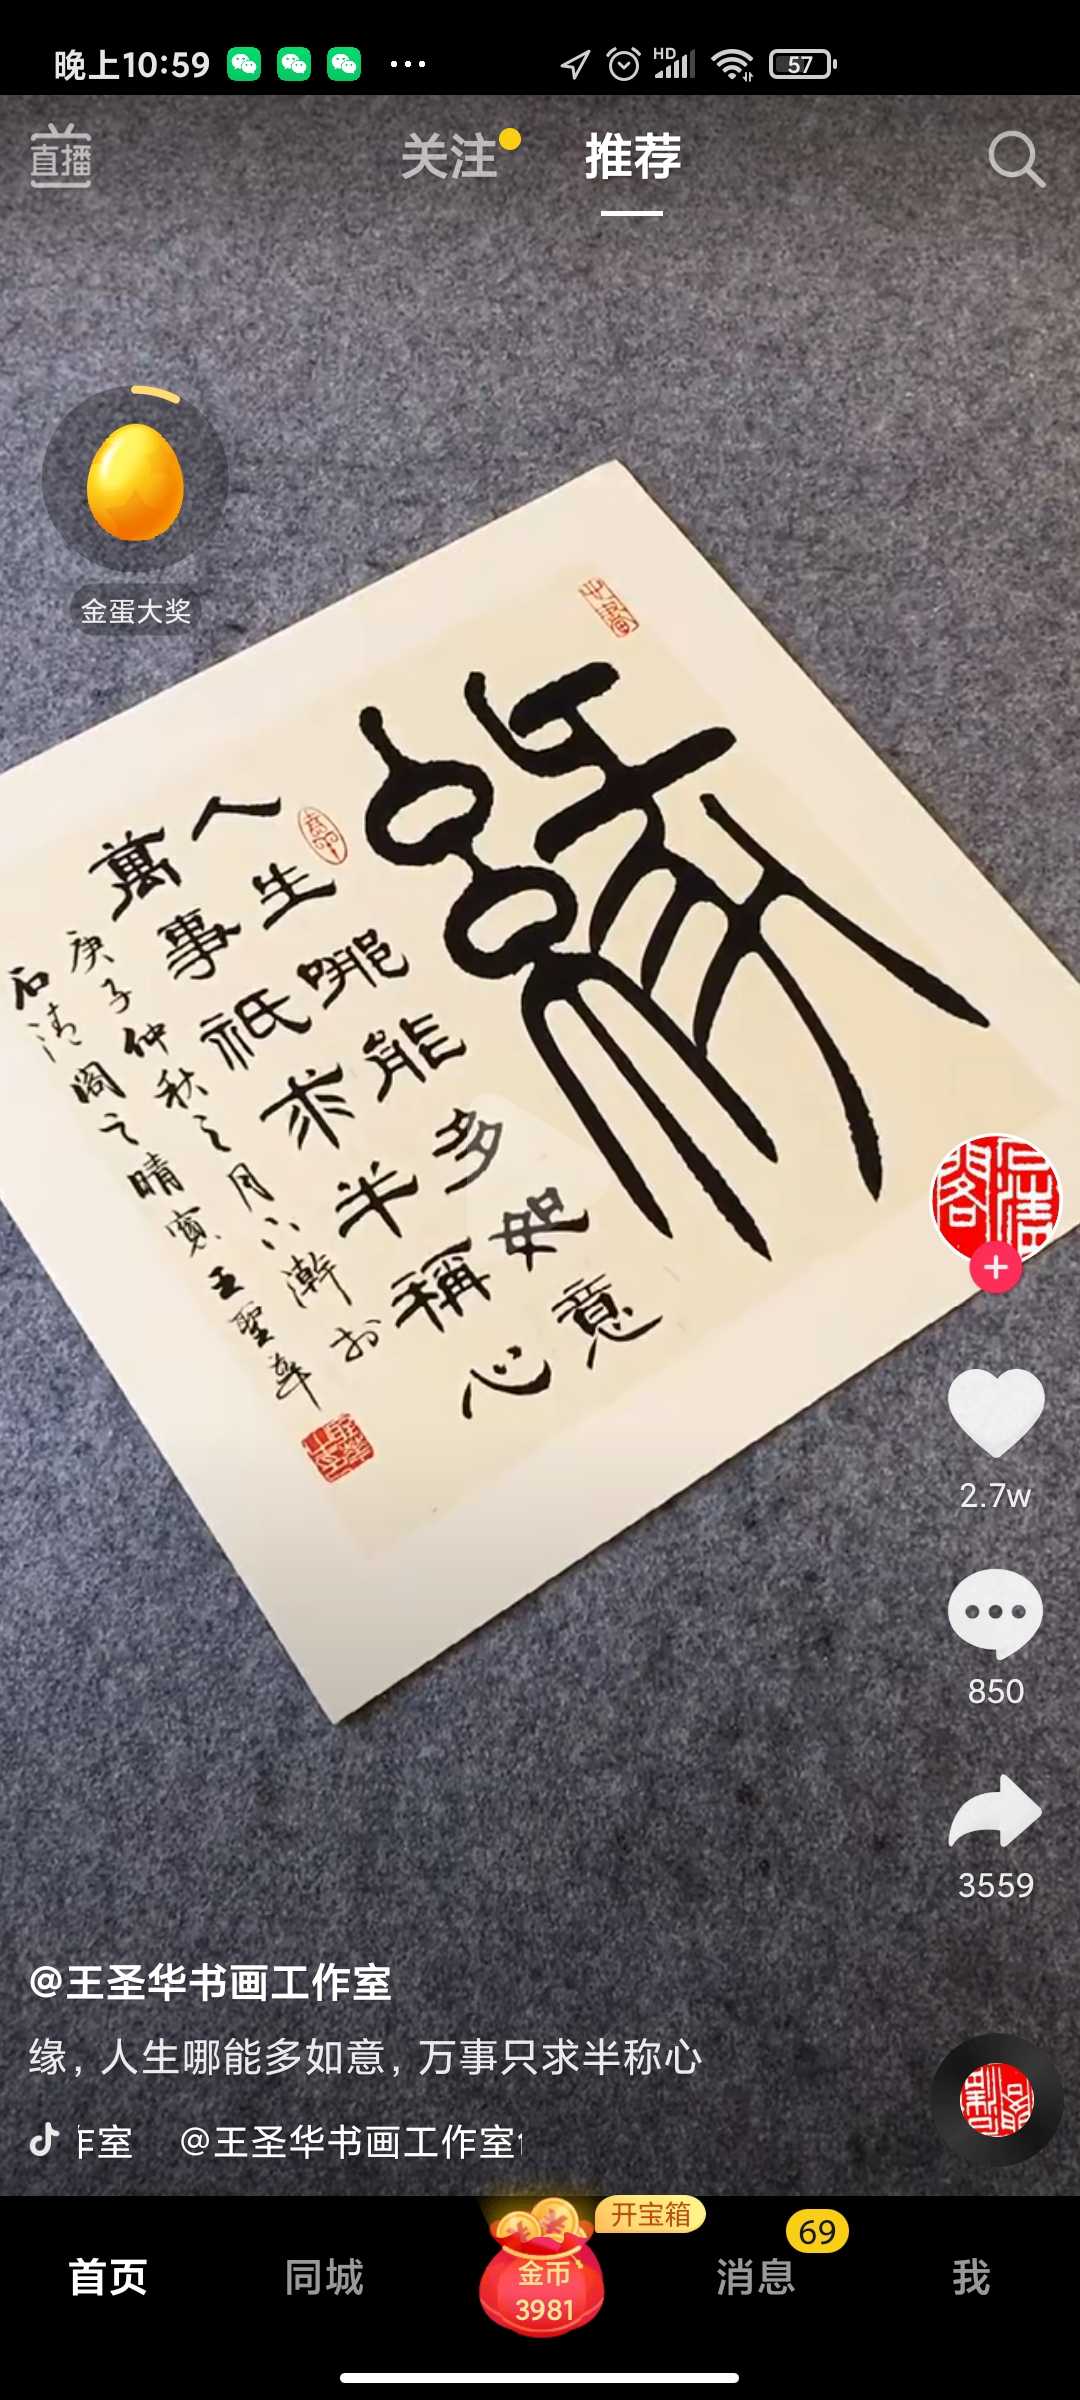 晚上10:59
HD
57
直播
关注
推荐
金蛋大奖
緣
人生哪能多如意
萬事祇求半稱心
庚子仲秋之月
石清阁之晴窗王聖华
2.7w
850
3559
@王圣华书画工作室
缘，人生哪能多如意，万事只求半称心
作室 @王圣华书画工作室
开宝箱
69
首页
同城
金币
3981
消息
我